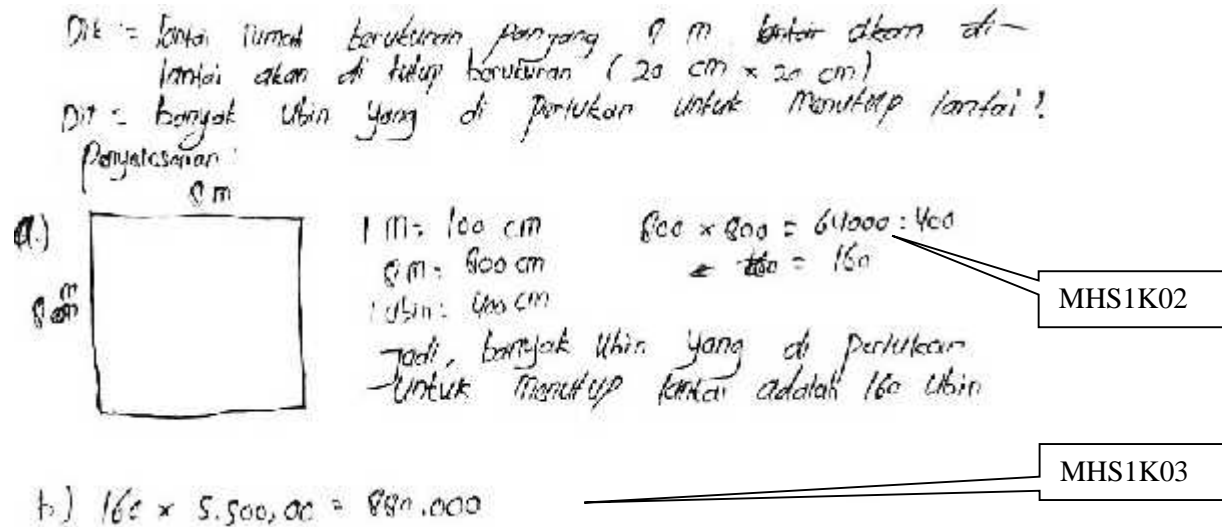 Dik = lantai rumah berukuran panjang 8 m lantai akan di-
lantai akan di tutup berukuran (20 cm × 20 cm)
Dit = banyak Ubin yang di perlukan untuk menutup lantai?
Penyelesaian:
8 m
a.)
8 m
1 m = 100 cm
8 m = 800 cm
1 Ubin = 400 cm
800 × 800 = 64000 : 400
= 160
MHS1K02
Jadi, banyak Ubin yang di perlukan
untuk menutup lantai adalah 160 Ubin
MHS1K03
b.) 160 × 5.500,00 = 880.000